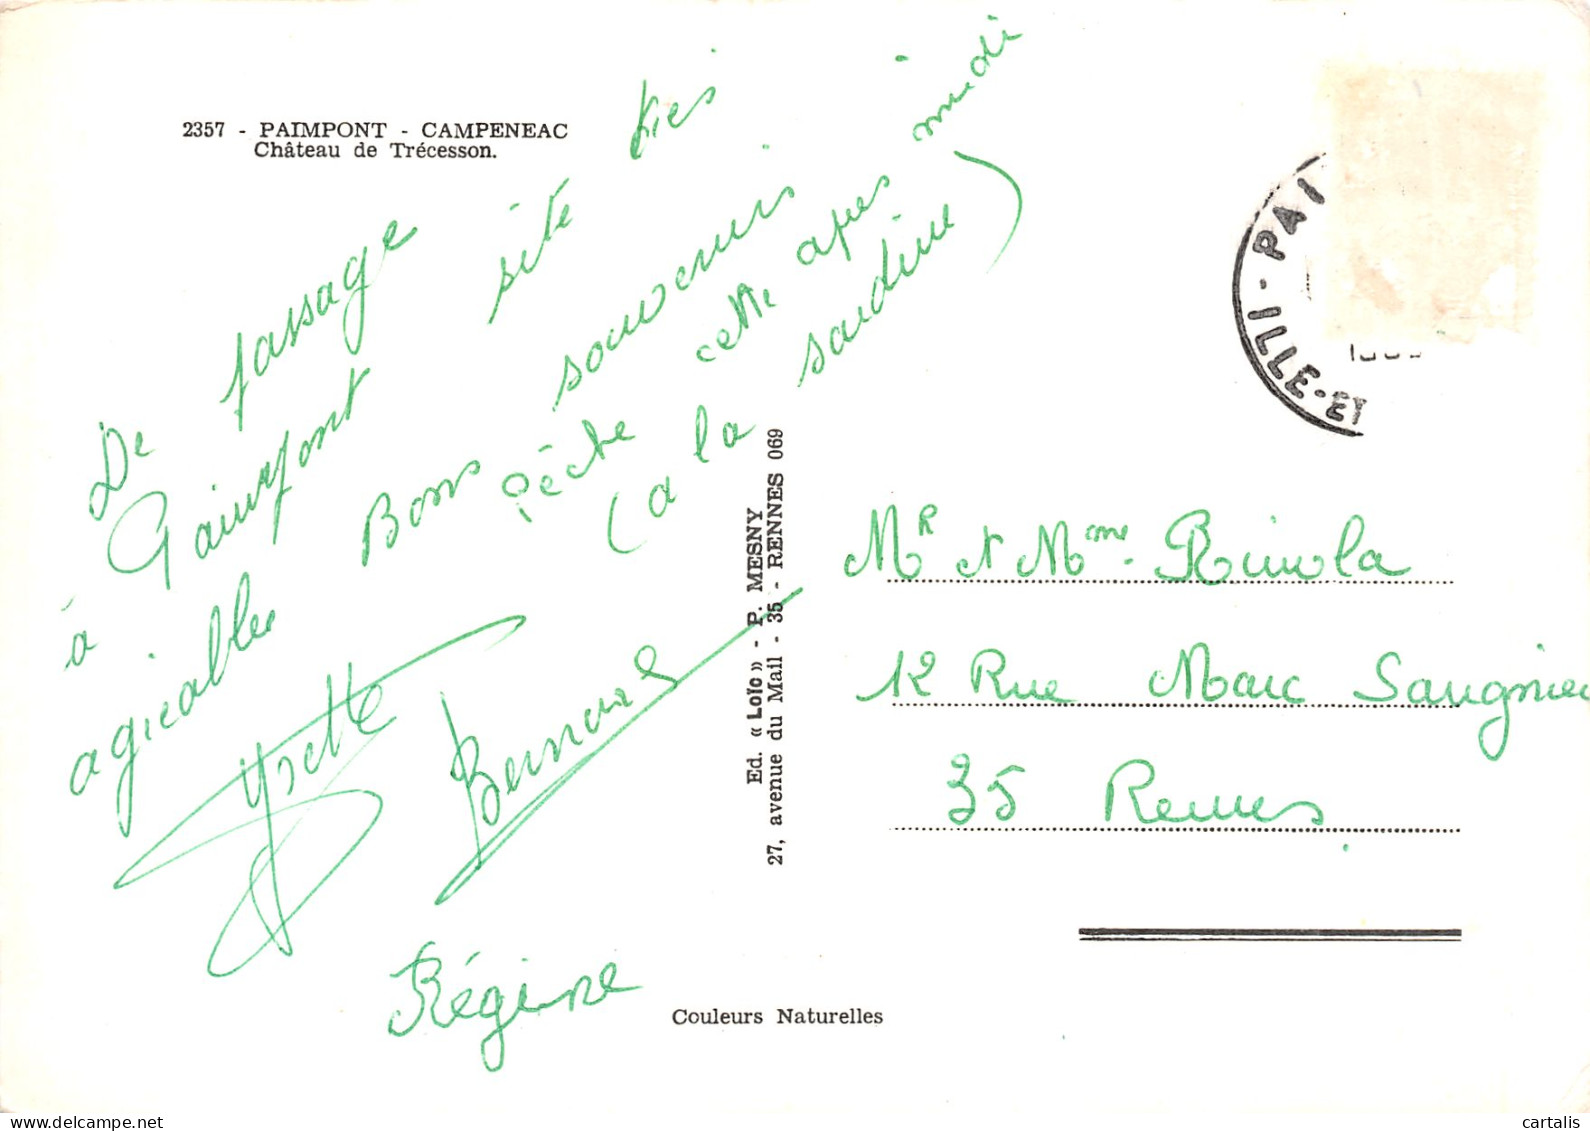 2357 - PAIMPONT - CAMPENEAC
Château de Trécesson.
De passage
à Paimpont site très
agréables Bons souvenirs
pêche cette après midi
(a la sardine)
Yvette
Bernard
Régine
Ed. « Loïc » - P. MESNY
27, avenue du Mail - 35 - RENNES 069
PAI
ILLE-ET
Mr et Mme
12 Rue Marc Saugnier
35 Rennes
Couleurs Naturelles
cartalis